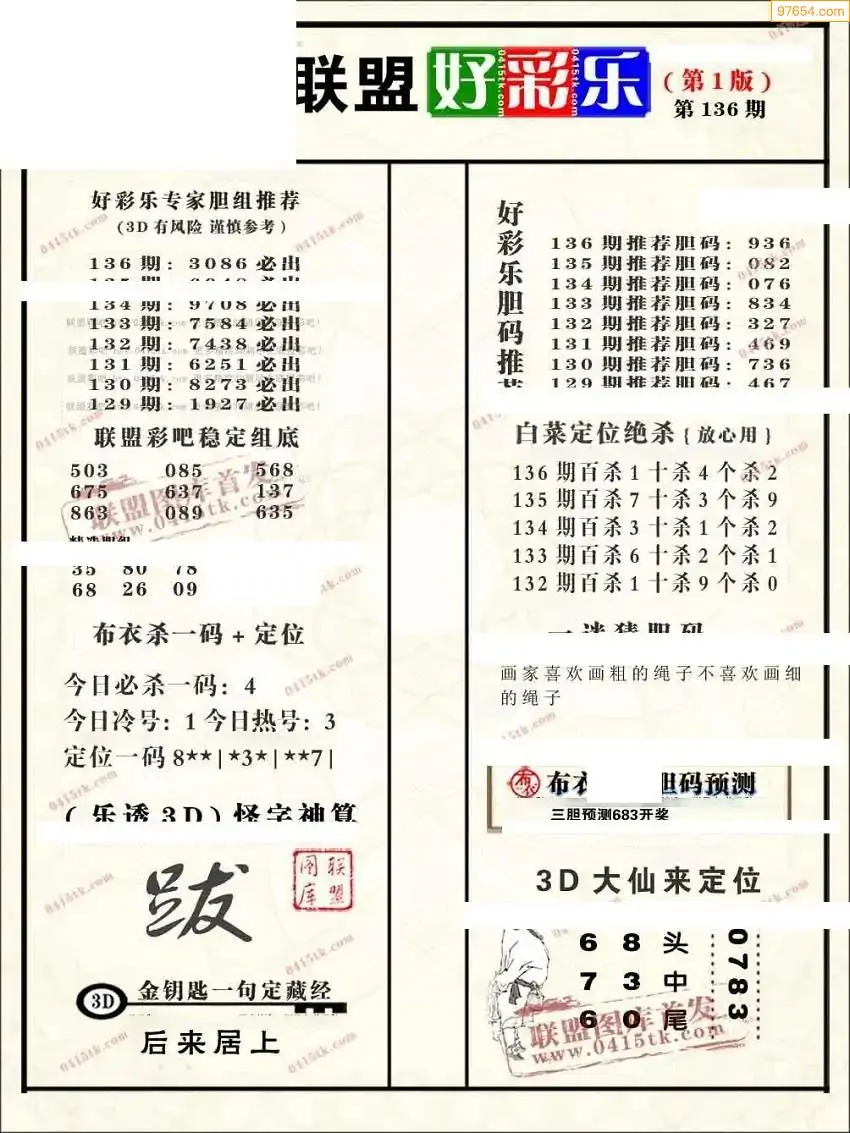 97654.com
联盟好彩乐
0415tk.com 0415tk.com
(第1版)
第136期
好彩乐专家胆组推荐
(3D有风险 谨慎参考)
136期：3086必出
134期：9708必出
133期：7584必出
132期：7438必出
131期：6251必出
130期：8273必出
129期：1927必出
联盟彩吧稳定组底
503 085 568
675 637 137
863 089 635
35 80 78
68 26 09
布衣杀一码+定位
今日必杀一码：4
今日冷号：1 今日热号：3
定位一码8**|*3*|**7|
(乐透3D)怪字神算
跋
联盟图库
3D 金钥匙一句定藏经
后来居上
好彩乐胆码推荐
136期推荐胆码：936
135期推荐胆码：082
134期推荐胆码：076
133期推荐胆码：834
132期推荐胆码：327
131期推荐胆码：469
130期推荐胆码：736
129期推荐胆码：467
白菜定位绝杀{放心用}
136期百杀1十杀4个杀2
135期百杀7十杀3个杀9
134期百杀3十杀1个杀2
133期百杀6十杀2个杀1
132期百杀1十杀9个杀0
一谜猜胆码
画家喜欢画粗的绳子不喜欢画细
的绳子
布衣 布衣 胆码预测
三胆预测683开奖
3D大仙来定位
6 8 头
7 3 中
6 0 尾
0783
联盟图库首发
www.0415tk.com
联盟图库首发
www.0415tk.com